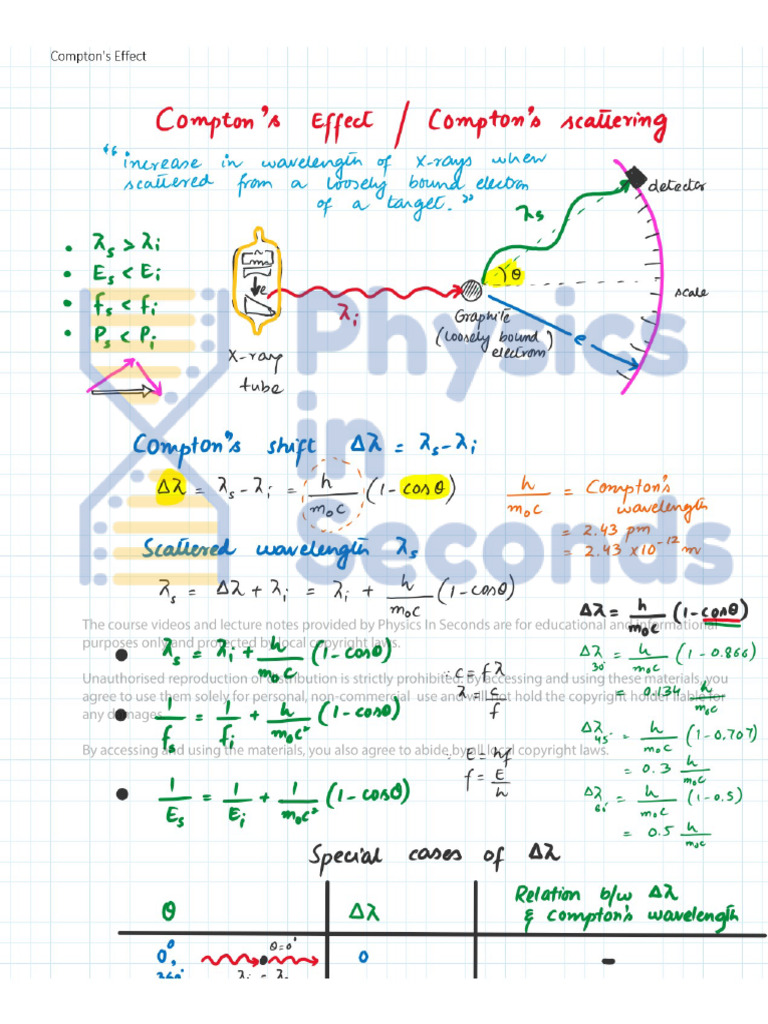 Compton's Effect
Compton's Effect / Compton's scattering
"increase in wavelength of x-rays when
scattered from a loosely bound electron
of a target."
detector
λs
• λs > λi
• Es < Ei
• fs < fi
• Ps < Pi
e
θ
λi
scale
Graphite
(loosely bound)
electron
e
X-ray
tube
Physics
in
Seconds
Compton's shift Δλ = λs - λi
Δλ = λs - λi = h/m₀c (1 - cosθ)
h/m₀c = Compton's
wavelength
= 2.43 pm
= 2.43 x10⁻¹² m
Scattered wavelength λs
λs = Δλ + λi = λi + h/m₀c (1 - cosθ)
The course videos and lecture notes provided by Physics In Seconds are for educational and informational
purposes only and protected by local copyright laws.
Unauthorised reproduction or distribution is strictly prohibited. By accessing and using these materials, you
agree to use them solely for personal, non-commercial use and will not hold the copyright holder liable for
any damages.
By accessing and using the materials, you also agree to abide by all local copyright laws.
• λs = λi + h/m₀c (1 - cosθ)
• 1/fs = 1/fi + h/m₀c² (1 - cosθ)
• 1/Es = 1/Ei + 1/m₀c² (1 - cosθ)
∵ c = fλ
λ = c/f
∵ E = hf
f = E/h
Δλ = h/m₀c (1 - cosθ)
Δλ 30° = h/m₀c (1 - 0.866)
= 0.134 h/m₀c
Δλ 45° = h/m₀c (1 - 0.707)
= 0.3 h/m₀c
Δλ 60° = h/m₀c (1 - 0.5)
= 0.5 h/m₀c
Special cases of Δλ
θ
Δλ
Relation b/w Δλ
& Compton's wavelength
0°,
θ=0°
0
-
360°